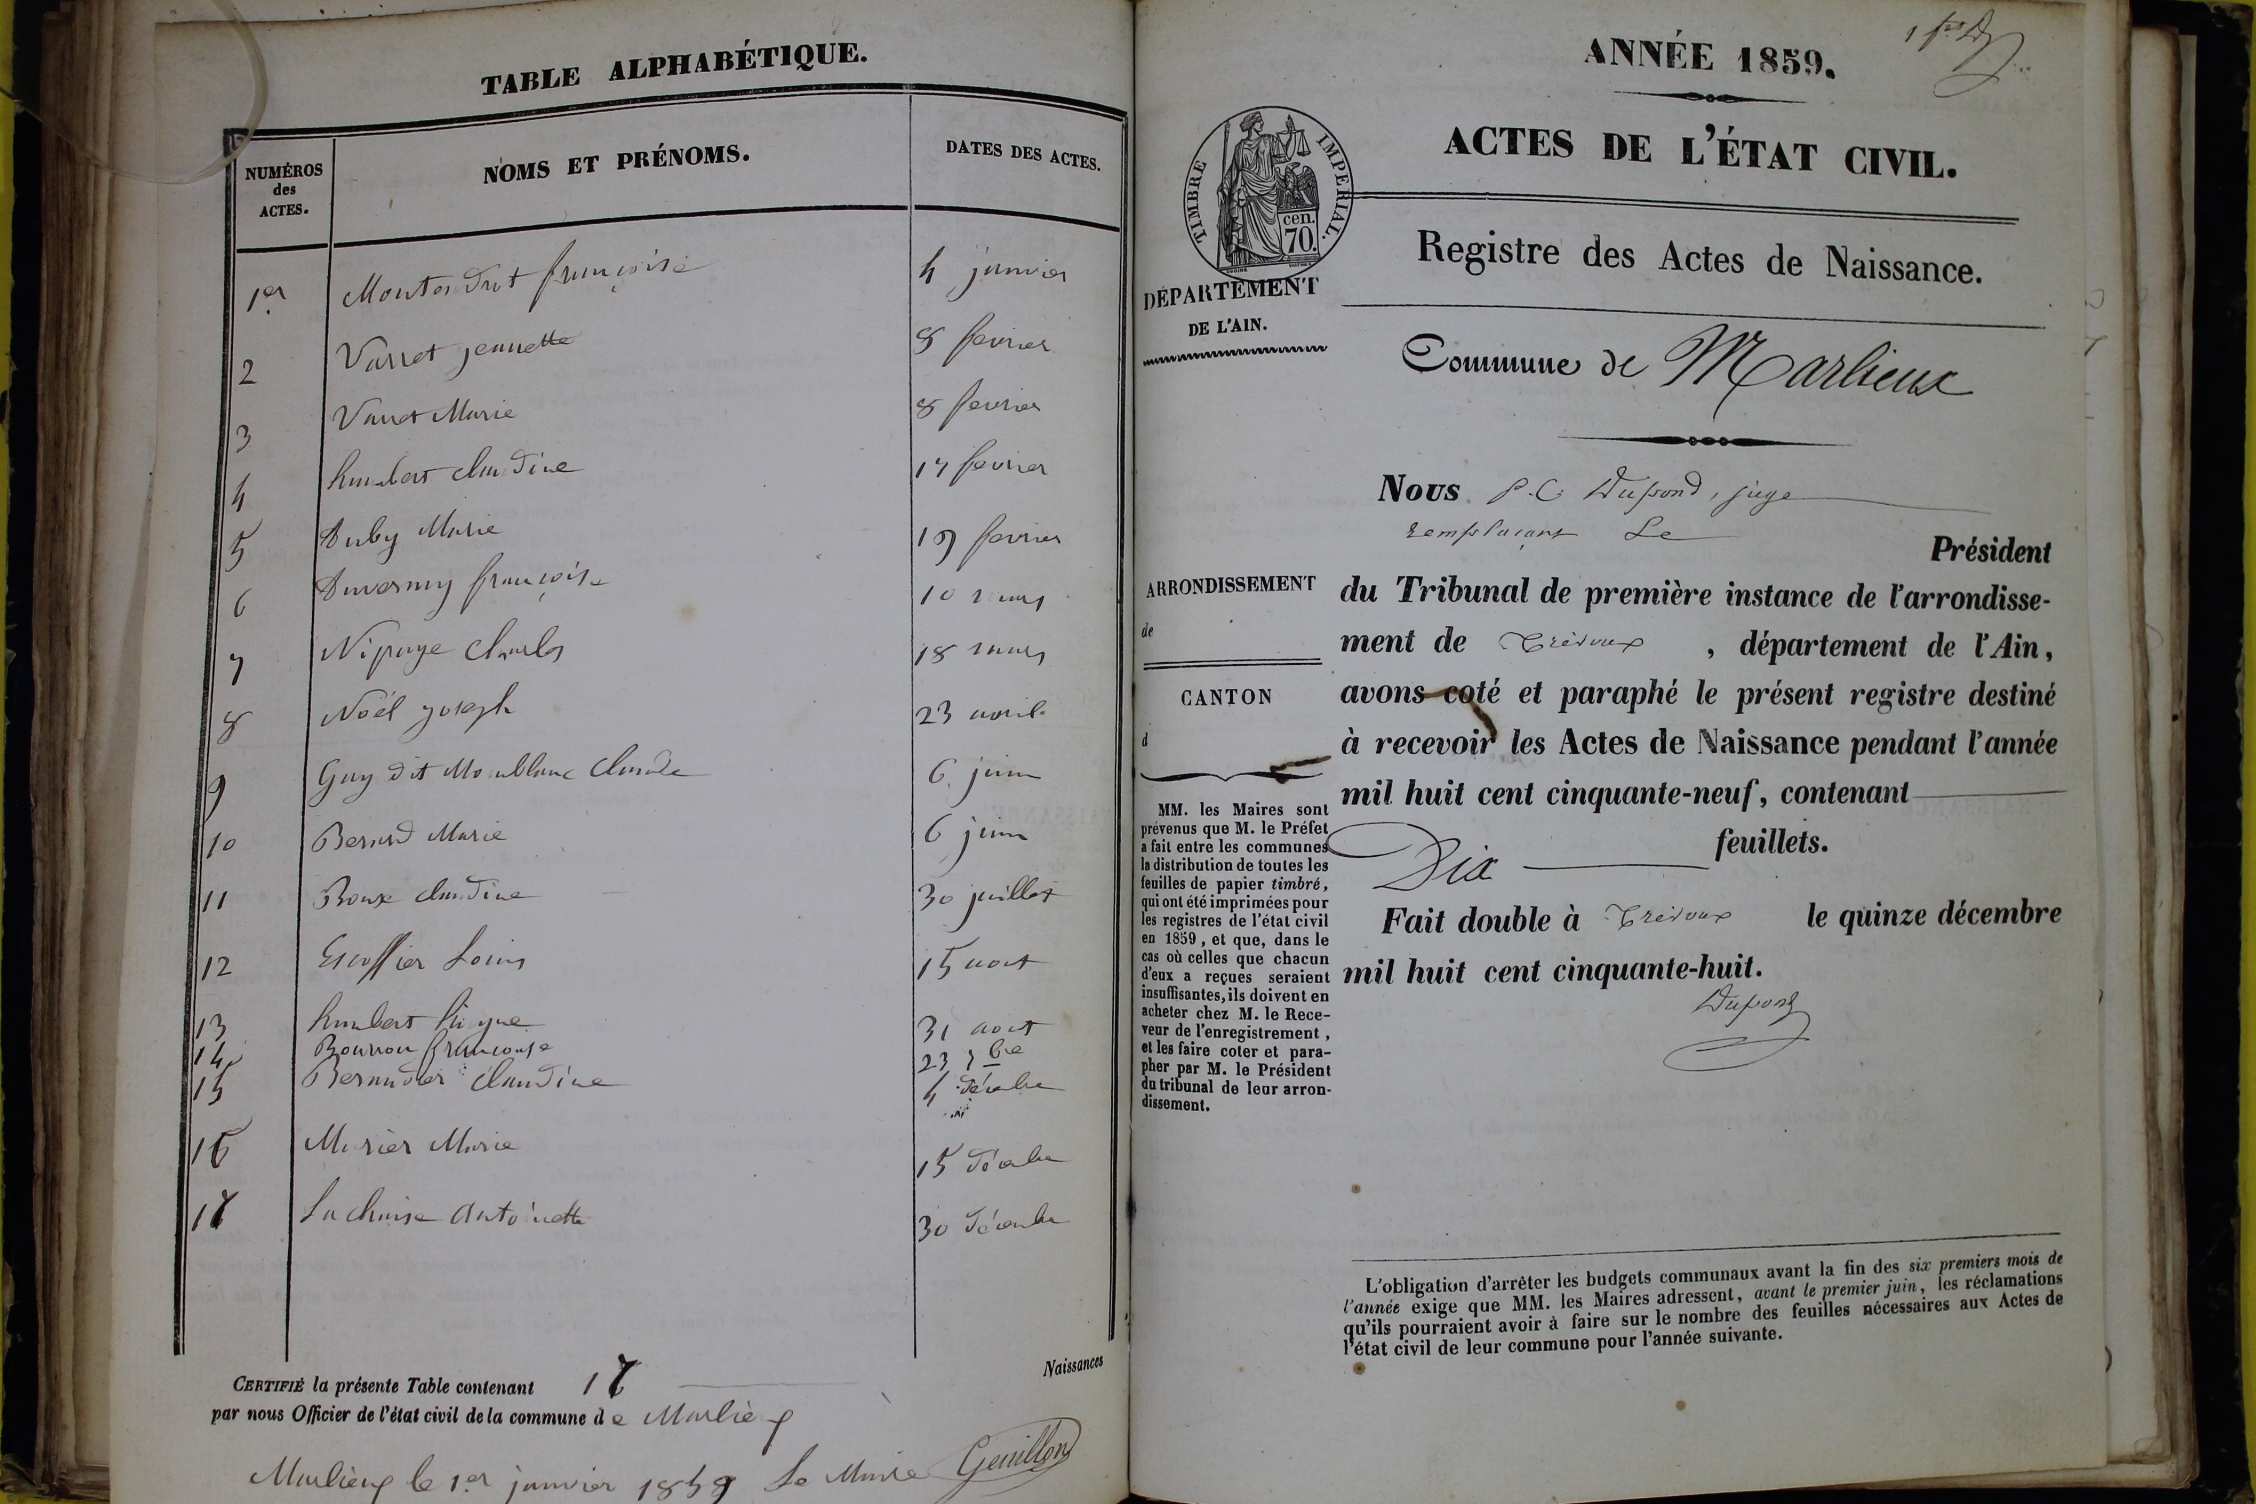 TABLE ALPHABÉTIQUE.
NUMÉROS des ACTES. NOMS ET PRÉNOMS. DATES DES ACTES.
1er françoise 4 janvier
2 Varret jeannette 8 fevrier
3 Varret Marie 8 fevrier
4 humbert claudine 17 fevrier
5 Marie 19 fevrier
6 françoise 10 mars
7 Charles 18 mars
8 Noël joseph 23 avril
9 Guy dit Monblanc Claude 6 juin
10 Berard Marie 6 juin
11 Roux claudine 30 juillet
12 Escoffier Louis 15 aout
13 humbert 31 aout
14 Bourron françoise 23 7bre
15 Beraudier Claudine 4 décembre
16 Marie 15 décembre
17 Lachaise antoinette 30 décembre
CERTIFIÉ la présente Table contenant 17
par nous Officier de l'état civil de la commune de Marlieux
Naissances
Marlieux le 1er janvier 1859 Le Maire Genillon
ANNÉE 1859.
ACTES DE L'ÉTAT CIVIL.
TIMBRE IMPERIAL.
cen.
70.
Registre des Actes de Naissance.
DÉPARTEMENT
DE L'AIN.
Commune de Marlieux
Nous P. C. Dupond, juge
remplaçant Le
Président
du Tribunal de première instance de l'arrondisse-
ment de Trévoux, département de l'Ain,
avons coté et paraphé le présent registre destiné
à recevoir les Actes de Naissance pendant l'année
mil huit cent cinquante-neuf, contenant
Dix feuillets.
Fait double à Trévoux le quinze décembre
mil huit cent cinquante-huit.
Dupond
ARRONDISSEMENT
de
CANTON
d
MM. les Maires sont
prévenus que M. le Préfet
a fait entre les communes
la distribution de toutes les
feuilles de papier timbré,
qui ont été imprimées pour
les registres de l'état civil
en 1859, et que, dans le
cas où celles que chacun
d'eux a reçues seraient
insuffisantes, ils doivent en
acheter chez M. le Rece-
veur de l'enregistrement,
et les faire coter et para-
pher par M. le Président
du tribunal de leur arron-
dissement.
L'obligation d'arrêter les budgets communaux avant la fin des six premiers mois de
l'année exige que MM. les Maires adressent, avant le premier juin, les réclamations
qu'ils pourraient avoir à faire sur le nombre des feuilles nécessaires aux Actes de
l'état civil de leur commune pour l'année suivante.